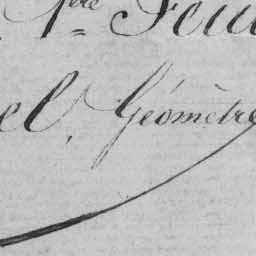 1ère Feui
el, Géomètre